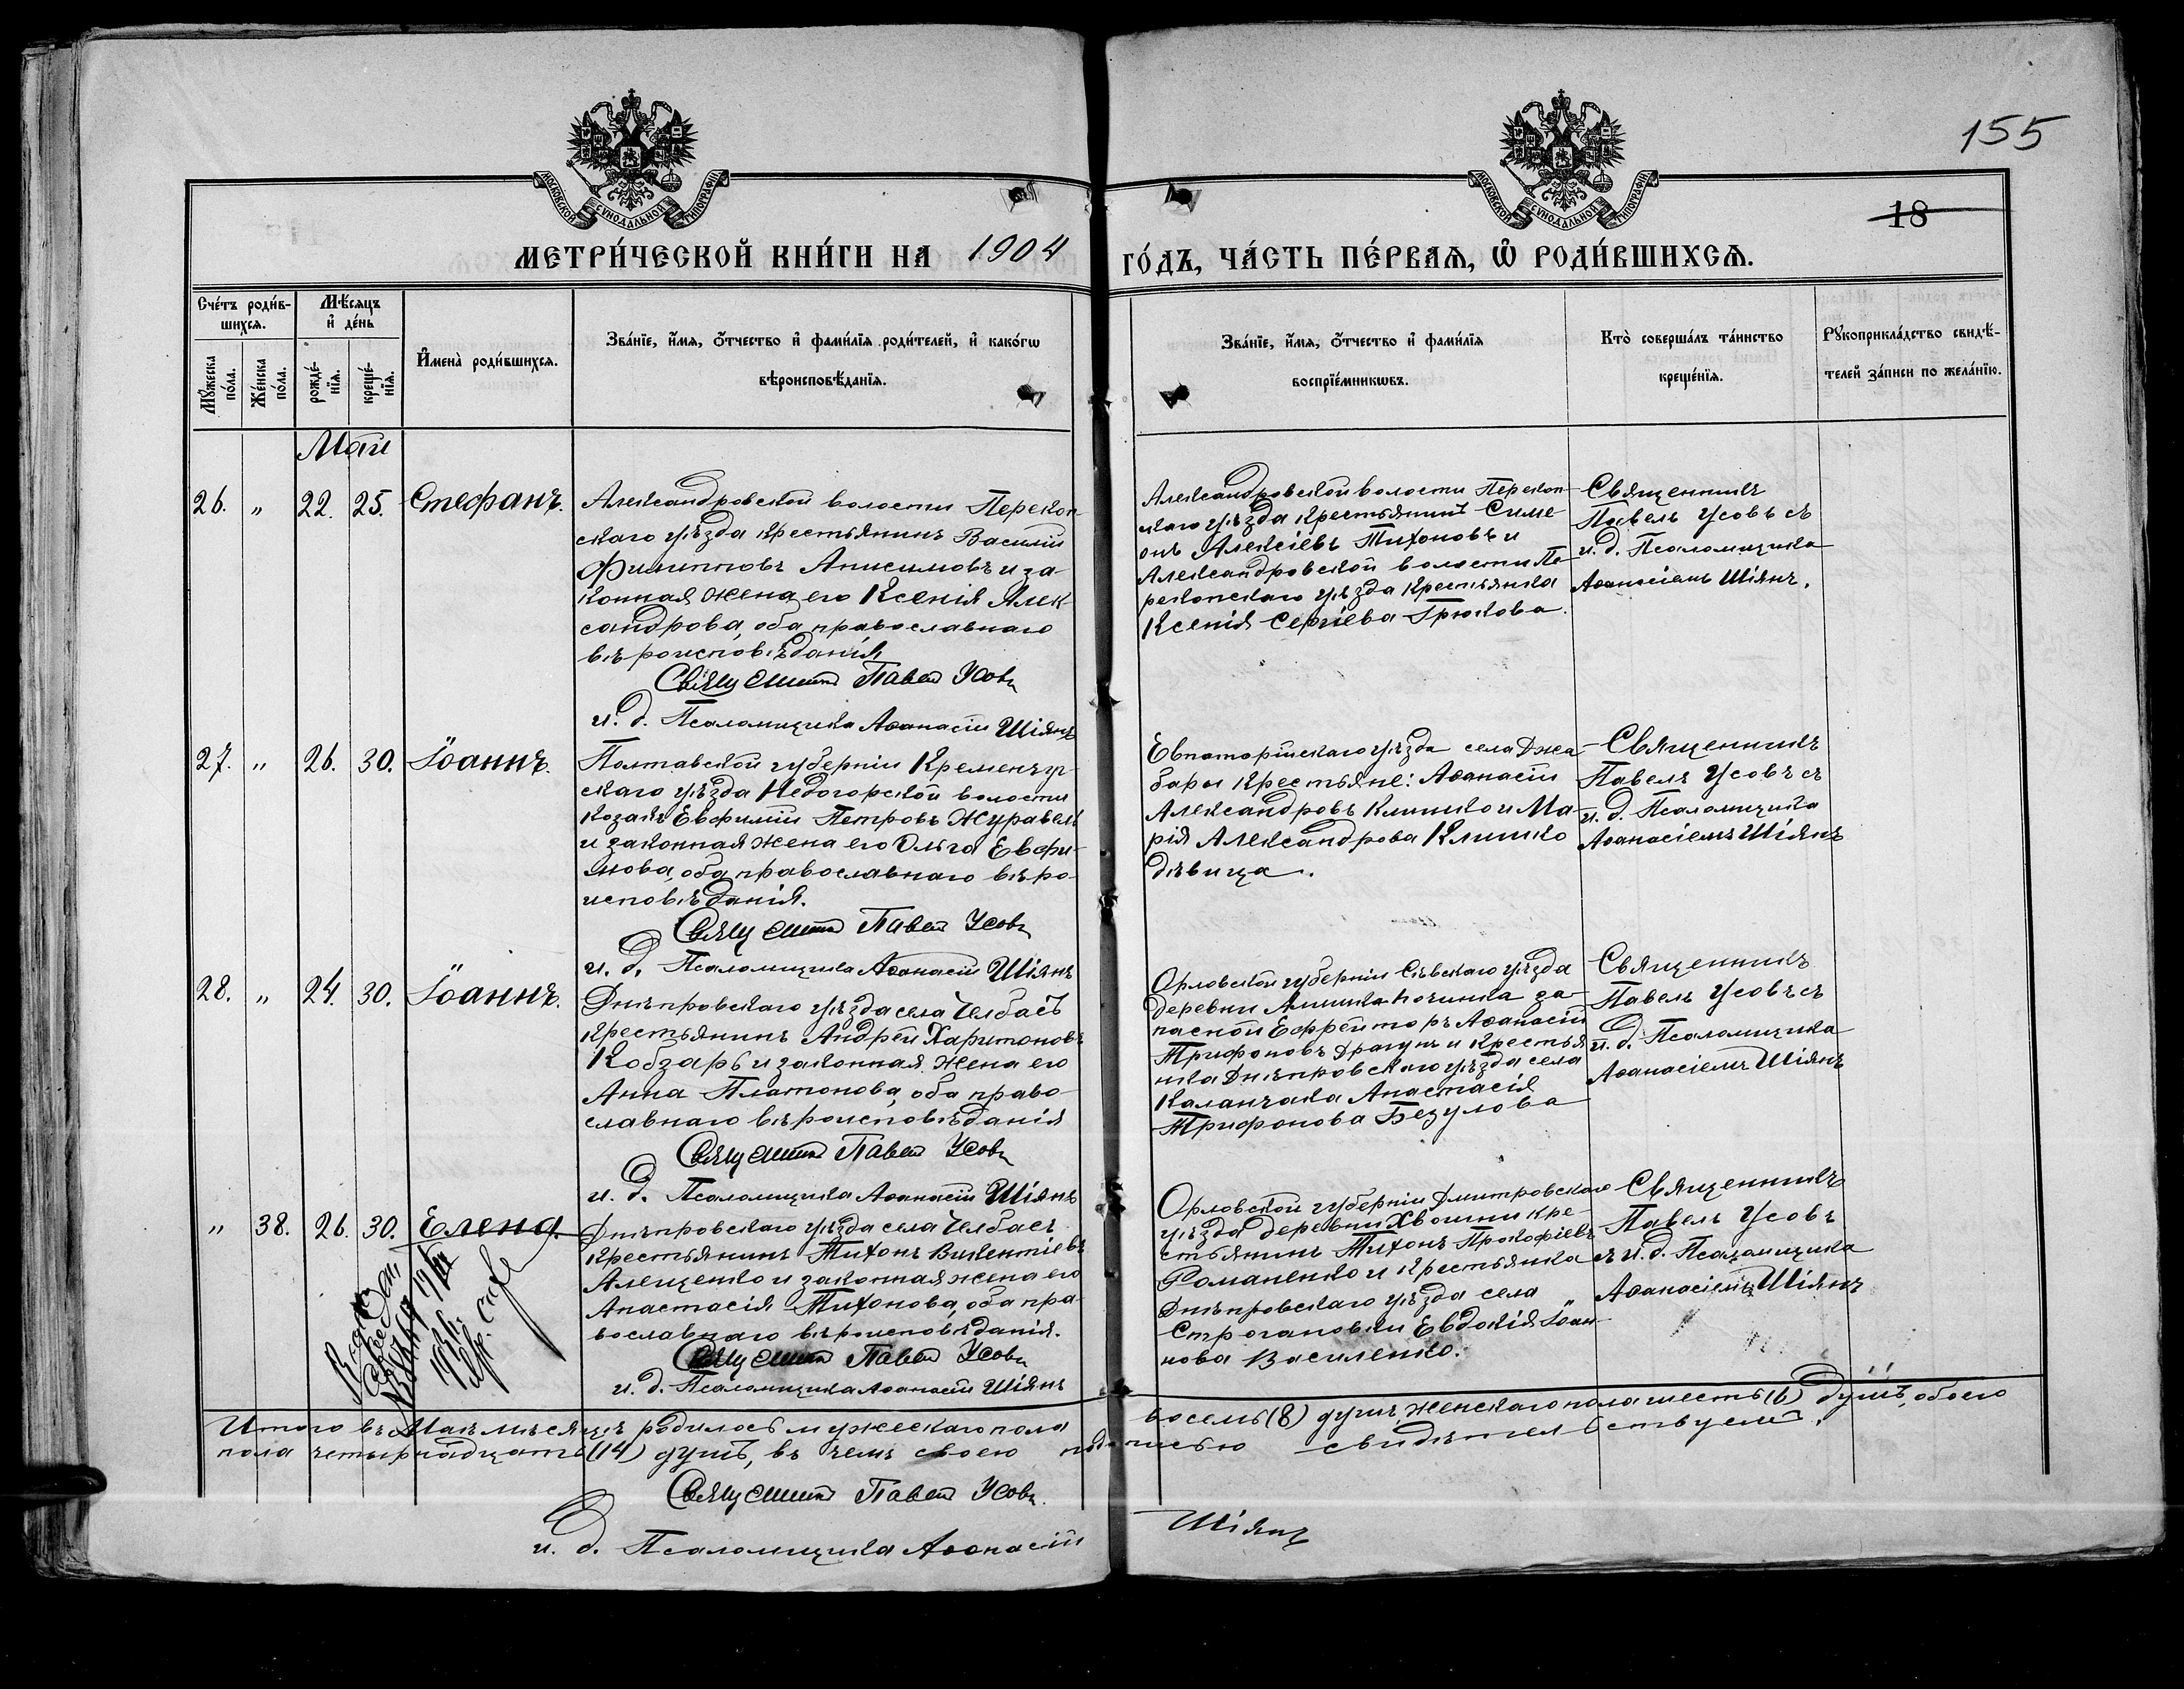 155
18
МОСКОВСКОЙ СУНОДАЛЬНОЙ ТИПОГРАФІИ
МОСКОВСКОЙ СУНОДАЛЬНОЙ ТИПОГРАФІИ
МЕТРИ́ЧЕСКОЙ КНИ́ГИ НА 1904 ГО́ДЪ, ЧА́СТЬ ПЕ́РВАѦ, Ѡ҆ РОДИ́ВШИХСѦ.
Сче́тъ роди́в-
шихсѧ.
Мѣ́сяцъ
и҆ де́нь
Мꙋ́жеска по́ла.
Же́нска по́ла.
рожде́-
нїѧ.
креще́-
нїѧ.
И҆мена̀ роди́вшихсѧ.
Зва́нїе, и҆́мѧ, ѻ҆́тчество и҆ фами́лїѧ роди́телей, и҆ како́гѡ
вѣроисповѣ́данїѧ.
Зва́нїе, и҆́мѧ, ѻ҆́тчество и҆ фами́лїѧ
воспрїе́мникѡвъ.
Кто̀ соверша́лъ та́инство
креще́нїѧ.
Рꙋкоприкла́дство свидѣ́-
телей за́писи по жела́нїю.
Май
26. „ 22. 25. Стефанъ.
Александровской волости Перекоп
скаго уѣзда крестьянинъ Василій
Филипповъ Анисимовъ и за-
конная жена его Ксенія Алек-
сандрова, оба православнаго
вѣроисповѣданія
Священникъ Павелъ Усовъ
и. д. Псаломщика Аѳанасій Шіянъ
Александровской волости Перекоп-
скаго уѣзда крестьянинъ Симе-
онъ Алексіевъ Тихоновъ и
Александровской волости Пе-
рекопскаго уѣзда крестьянка
Ксенія Сергіева Грюкова.
Священникъ
Павелъ Усовъ съ
и. д. Псаломщика
Аѳанасіемъ Шіянъ.
27. „ 26. 30. Іоаннъ.
Полтавской губерніи Кременчуг-
скаго уѣзда Недогорской волости
козакъ Евфимій Петровъ Журавель
и законная жена его Ольга Евфи-
мова, оба православнаго вѣро-
исповѣданія.
Священникъ Павелъ Усовъ
и. д. Псаломщика Аѳанасій Шіянъ
Евпаторійскаго уѣзда села Джа-
бары крестьяне: Аѳанасій
Александровъ Климко и Ма-
рія Александрова Климко
дѣвица.
Священникъ
Павелъ Усовъ съ
и. д. Псаломщика
Аѳанасіемъ Шіянъ
28. „ 24. 30. Іоаннъ.
Днѣпровскаго уѣзда села Челбасъ
крестьянинъ Андрей Харитоновъ
Кобзарь и законная жена его
Анна Платонова, оба право-
славнаго вѣроисповѣданія
Священникъ Павелъ Усовъ
и. д. Псаломщика Аѳанасій Шіянъ
Орловской губерніи Сѣвскаго уѣзда
деревни за-
пасной Ефрейторъ Аѳанасій
Трифоновъ Драгунъ и крестья
нка Днѣпровскаго уѣзда села
Каланчака Анастасія
Трифонова Безулова
Священникъ
Павелъ Усовъ съ
и. д. Псаломщика
Аѳанасіемъ Шіянъ
„ 38. 26. 30. Елена.
Днѣпровскаго уѣзда села Челбасъ
крестьянинъ Тихонъ Викентіевъ
Алещенко и законная жена его
Анастасія Тихонова, оба пра-
вославнаго вѣроисповѣданія.
Священникъ Павелъ Усовъ
и. д. Псаломщика Аѳанасій Шіянъ
Орловской губерніи Дмитровскаго
уѣзда деревни Хвощни кре-
стьянинъ Тихонъ Прокофіевъ
Романенко и крестьянка
Днѣпровскаго уѣзда села
Строгановки Евдокія Іоан-
нова Василенко.
Священникъ
Павелъ Усовъ
съ и. д. Псаломщика
Аѳанасіемъ Шіянъ
Итого въ Маѣ мѣсяцѣ родилось мужескаго пола восемь (8) душъ, женскаго пола шесть (6) душъ, обоего
пола четырнадцать (14) душъ, въ чемъ своею подписью свидѣтельствуемъ.
Священникъ Павелъ Усовъ.
и. д. Псаломщика Аѳанасій Шіянъ